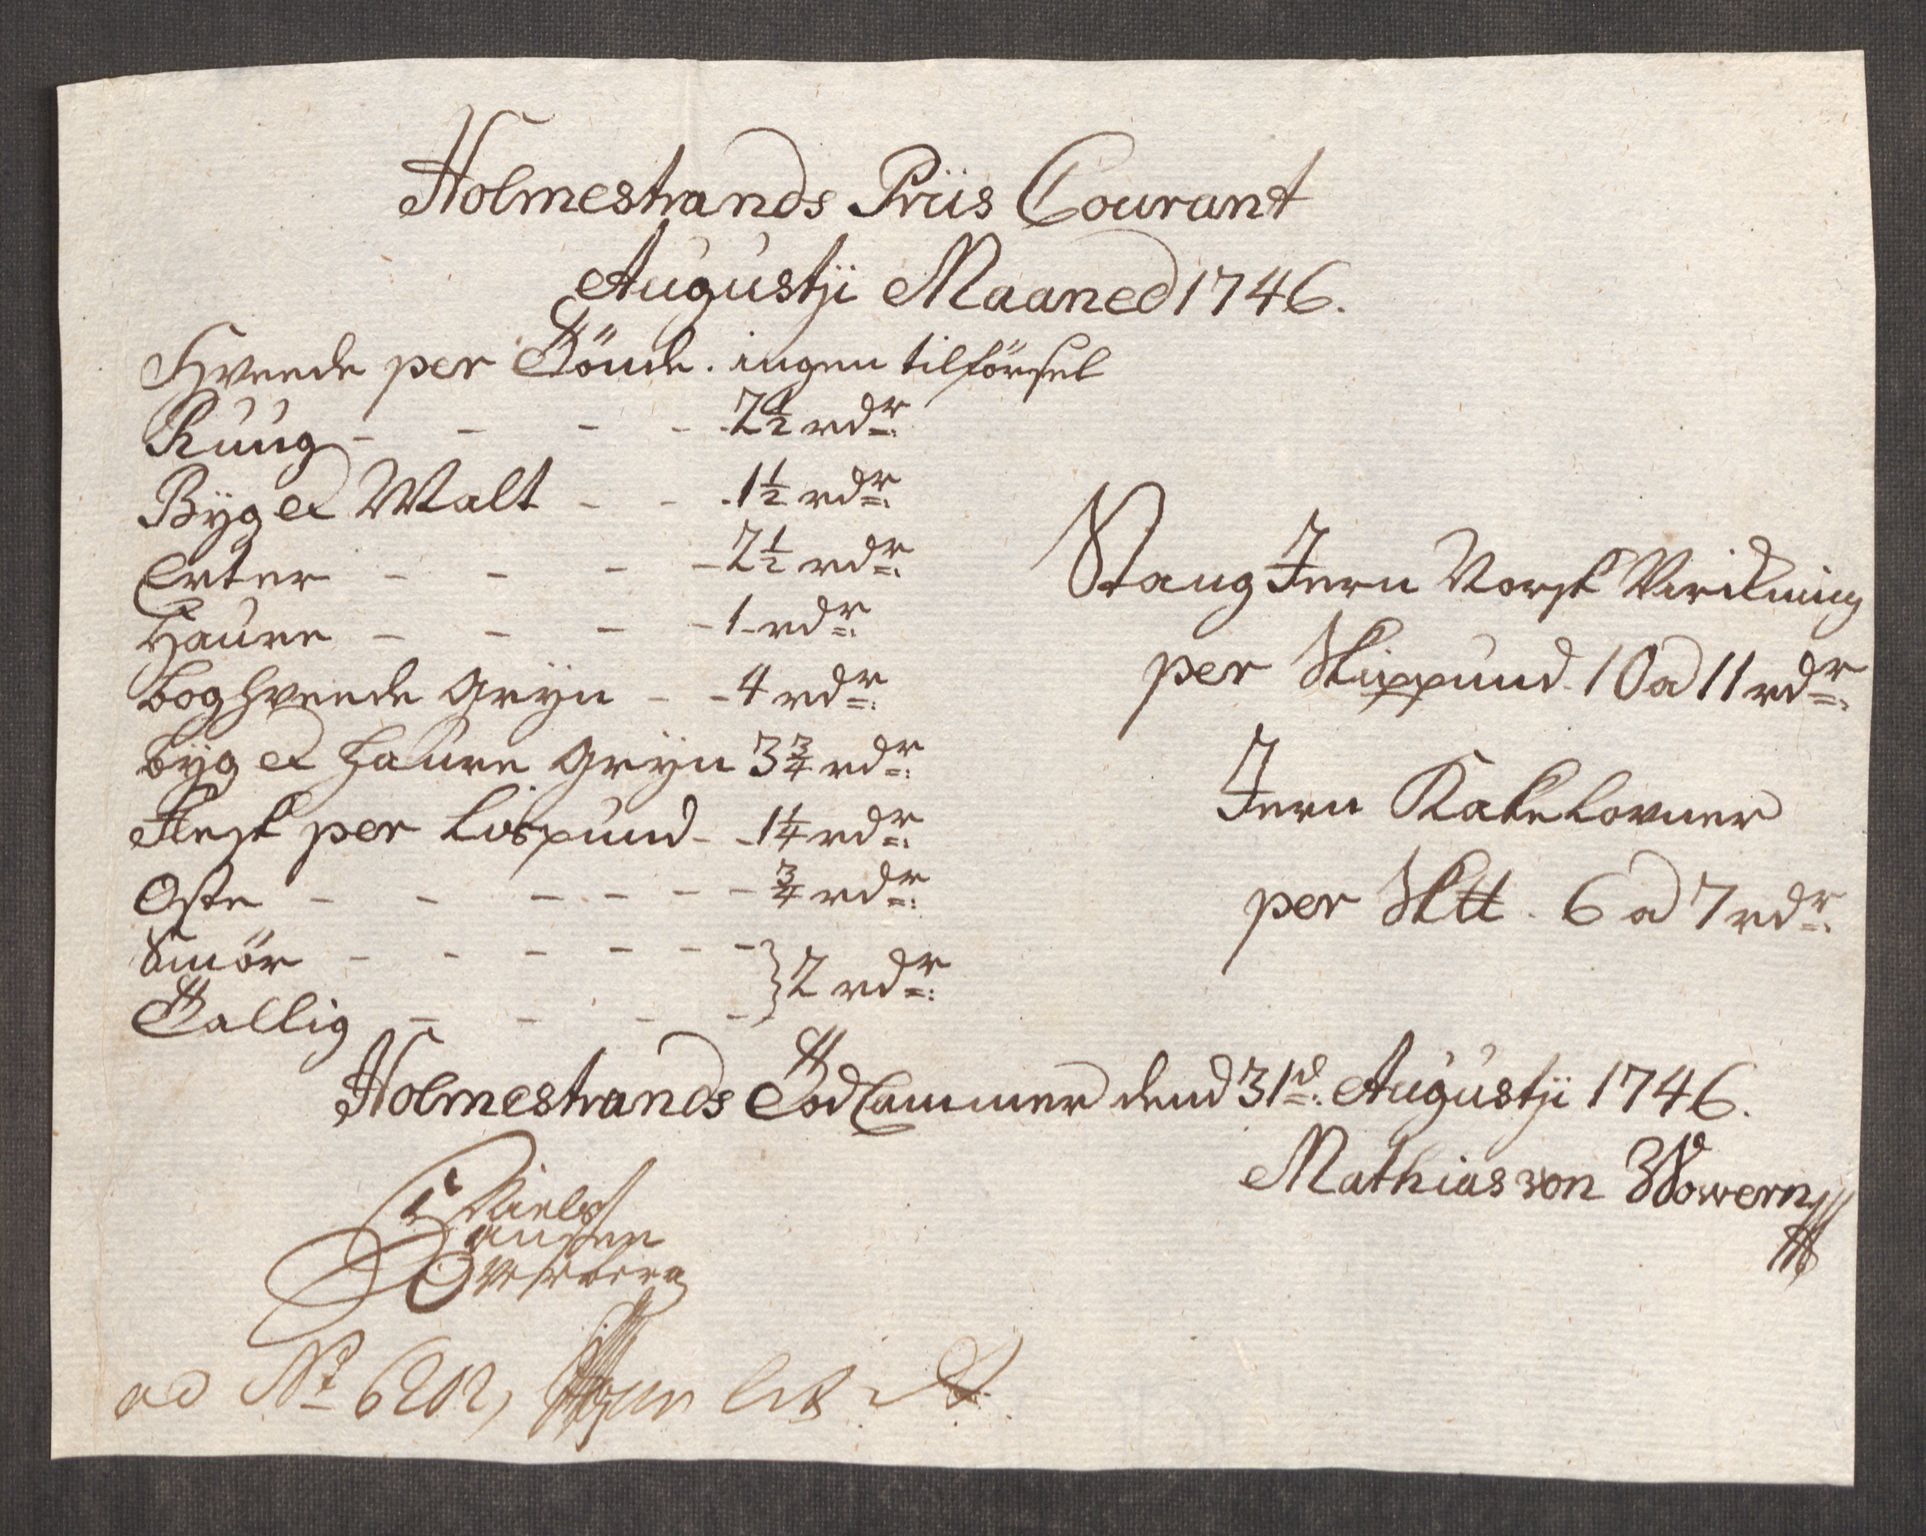 Holmestrands Priis Courant
Augustji Maaned 1746.
Hveede per Tönde. ingen tilförsel
Ruug - - - - 2½ rdr:
Byg & Malt - - 1½ rdr:
Erter - - - - 2½ rdr:
Haure - - - - 1 rdr:
boghveede Gryn - - 4 rdr:
byg & Haure Gryn 3¾ rdr:
Flesk per Lispund - - 1¼ rdr:
Oste - - - - - - ¾ rdr:
Smör - - - - - - } 2 rdr:
Tallig - - - -
Stang Jern Norsk Virkning
per Skippund 10 a 11 rdr:
Jern Kakelovner
per Sk℔. 6 a 7 rdr:
Holmestrands Told Cammer dend 31d: Augustji 1746.
Mathias von Wowern
Niels
Hansen
ad No 6202,